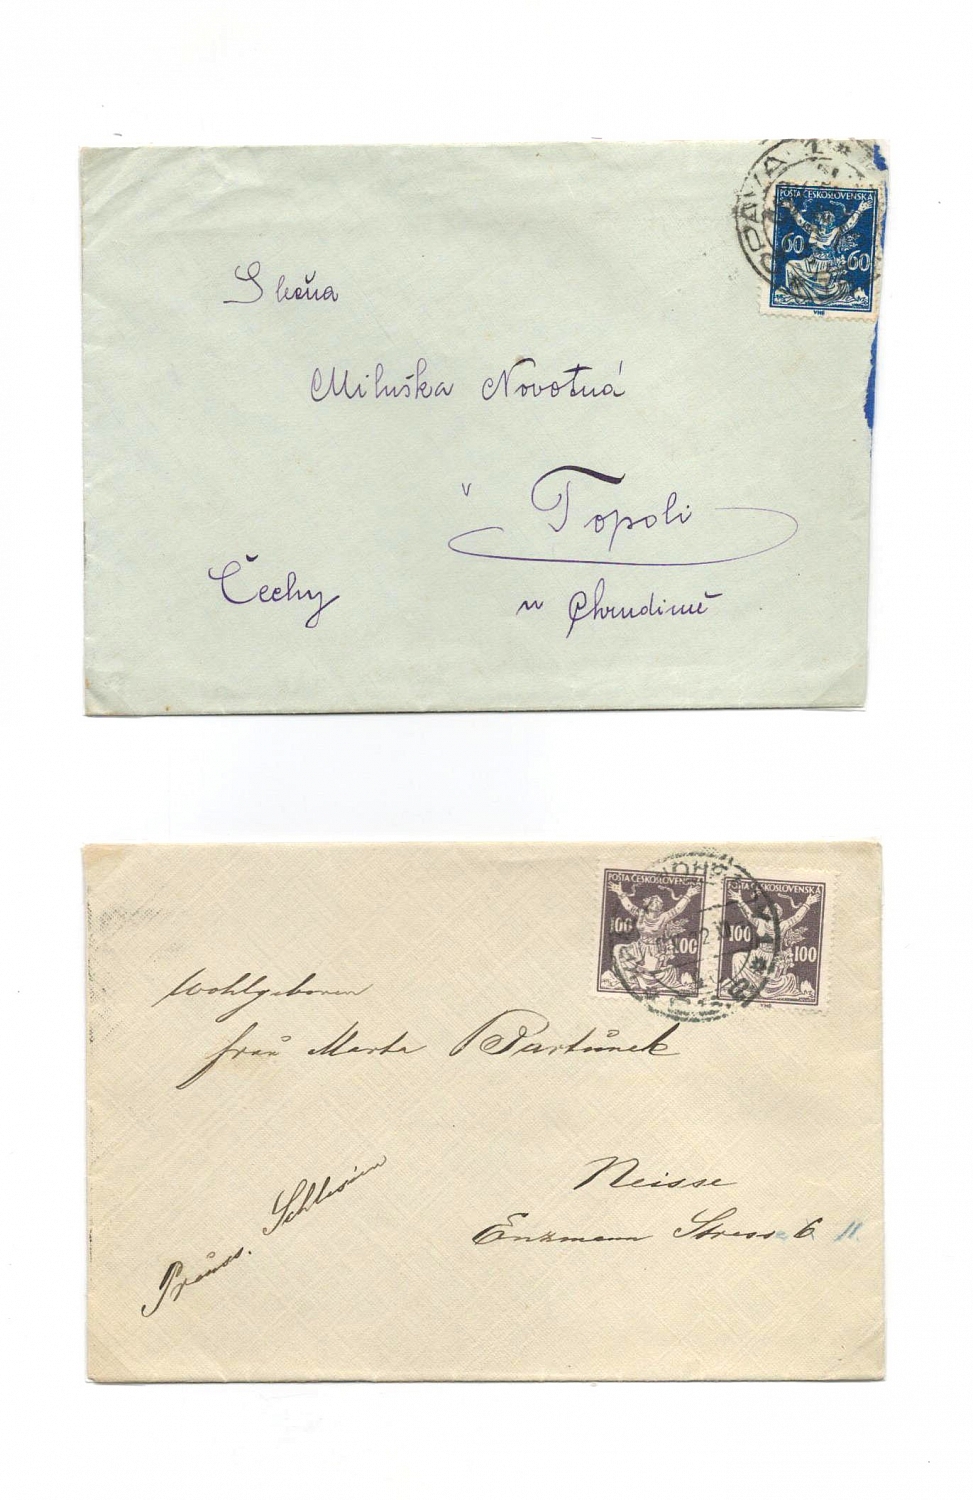 OPAVA 1 *
POŠTA ČESKOSLOVENSKÁ
60 60
VHB
Slečna
Miluška Novotná
v Topoli
Čechy u Chrudimě
POŠTA ČESKOSLOVENSKÁ POŠTA ČESKOSLOVENSKÁ
100 100 100 100
VHB
Wohlgeboren
Frau Marta Bartunek
Neisse
Enzmann Strasse 6 II.
Präuss. Schlesien